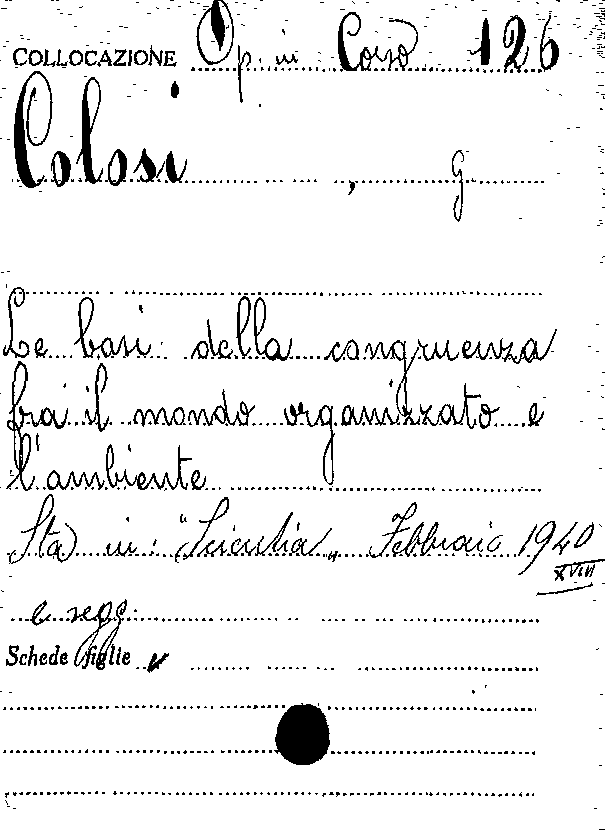 COLLOCAZIONE Op. in Corso 126
Colosi, G.
Le basi della congruenza
fra il mondo organizzato e
l'ambiente
Sta in: "Scientia" Febbraio 1940
XVIII
e segg.
Schede figlie v